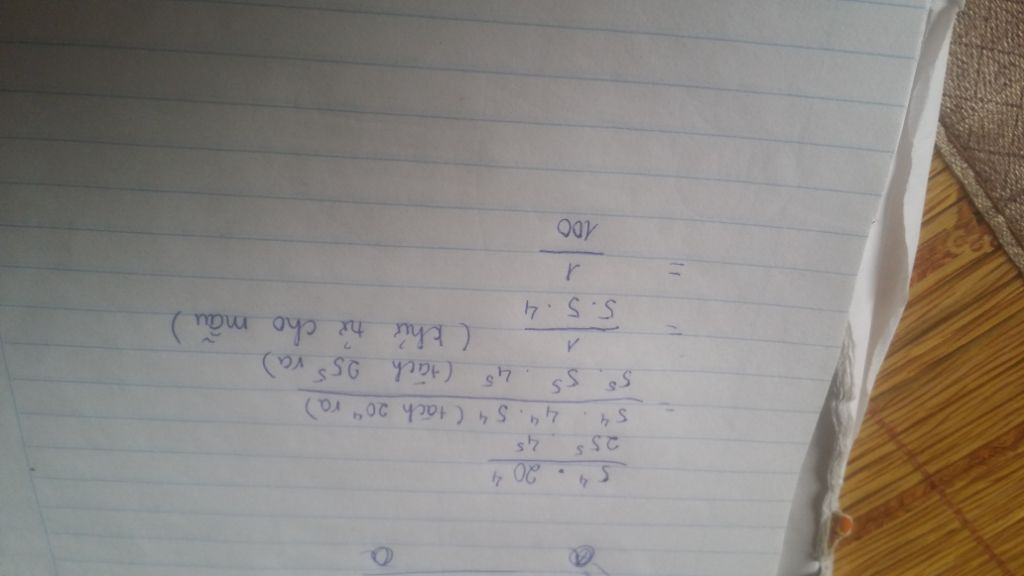 5⁴ . 20⁴
25⁵ . 4⁵
= 5⁴ . 4⁴ . 5⁴ (tách 20⁴ ra)
5⁵ . 5⁵ . 4⁵ (tách 25⁵ ra)
= 1
5 . 5 . 4 (khử tử cho mẫu)
= 1
100